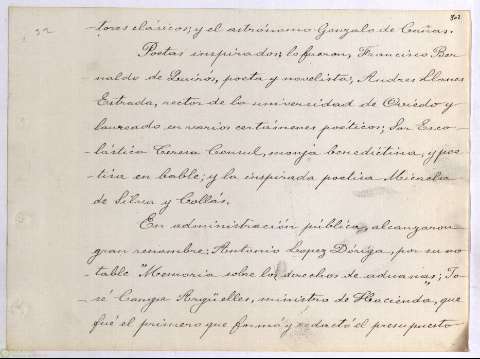 302
32
-tores clásicos; y el astrónomo Gonzalo de Cañas.
Poetas inspirados, lo fueron, Francisco Ber-
naldo de Quirós, poeta y novelista; Andres Llanes
Estrada, rector de la universidad de Oviedo y
laureado en varios certámenes poéticos; Sor Esco-
-lástica Teresa Consul, monja benedictina, y poe-
tisa en bable; y la inspirada poetisa Micaela
de Silva y Collás.
En administración pública, alcanzaron
gran renombre: Antonio Lopez Dóriga, por su no-
table "Memoria sobre los derechos de aduanas; Jo-
sé Canga Argüelles, ministro de Hacienda", que
fué el primero que formó y redactó el presupuesto